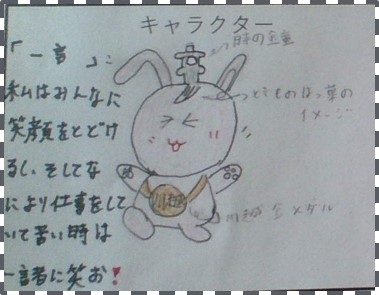 キャラクター
「一言」:
時の金童
私はみんなに
笑顔をとどけ
るし、そしてな
により仕事をして
いて苦い時は
一諸者に笑お!
イメージ
川越 金メダル
川越